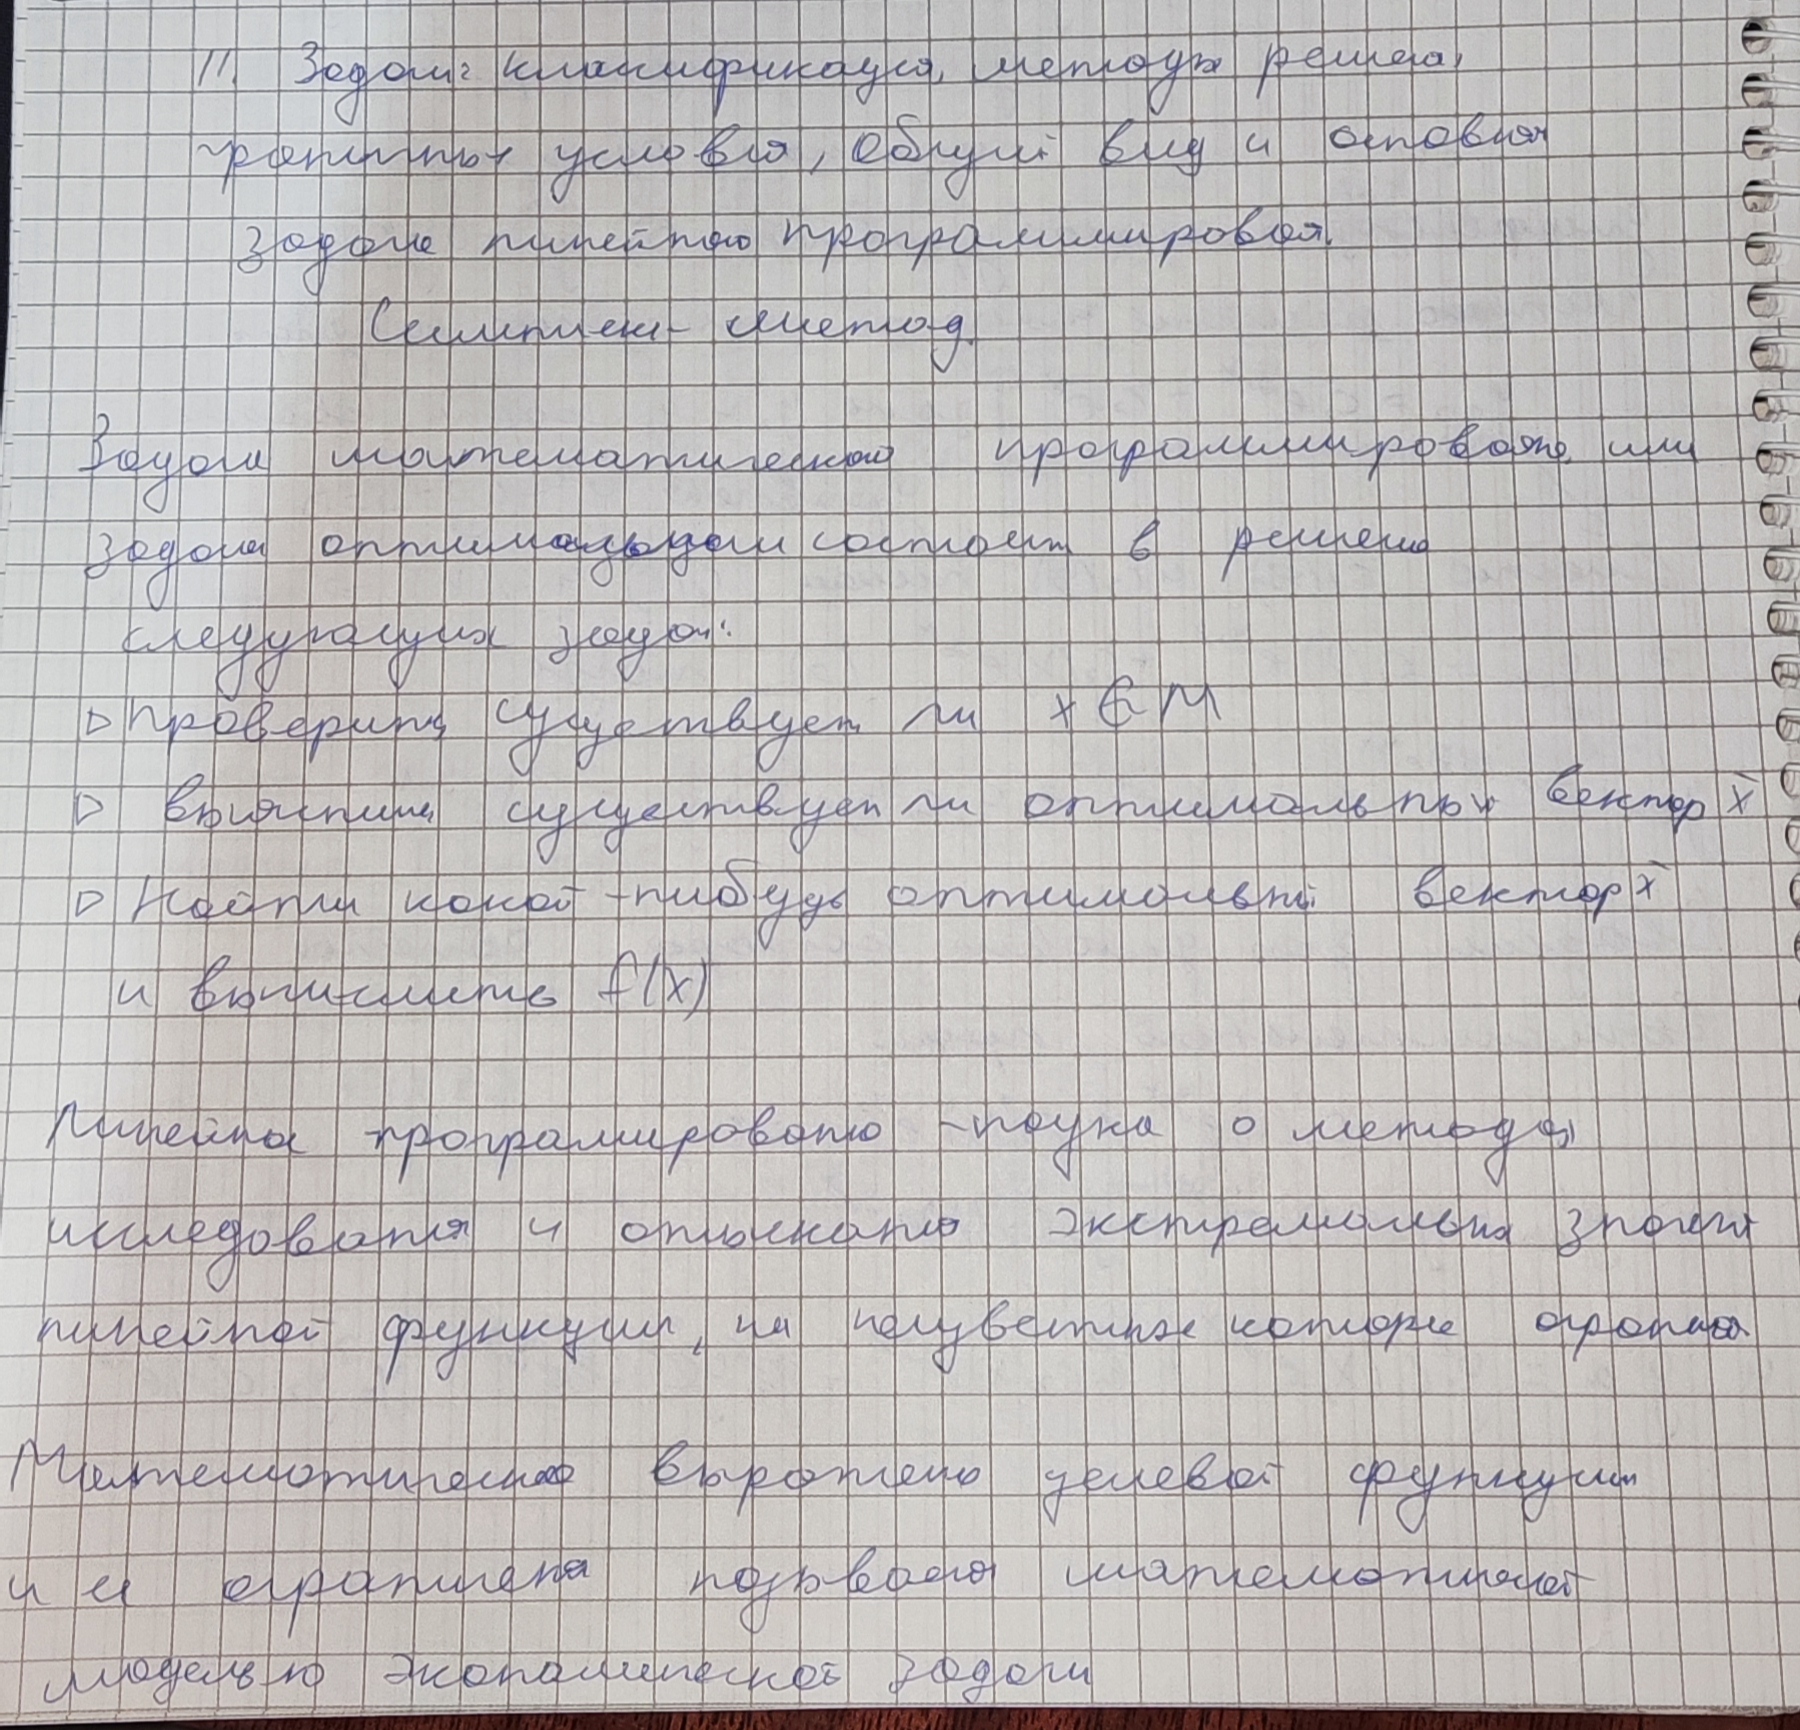 11. Задачи: класификация, методы решения,
граничные условия, Общий вид и основная
задача линейного программирования.
Симплекс-метод.
Задача математической программирование или
задача оптимизации состоит в решении
следующих задач:
▷ проверить существует ли x ∈ M
▷ выяснить существует ли оптимальный вектор x̄
▷ Найти какой-нибудь оптимальный вектор x̄
и вычислить f(x)
Линейное програмирование - наука о методах
исследования и отыскания экстремальных значений
линейной функции, на неизвестные которые
Математическое выражение целевой функции
и её ограничения называется математической
моделью экономической задачи